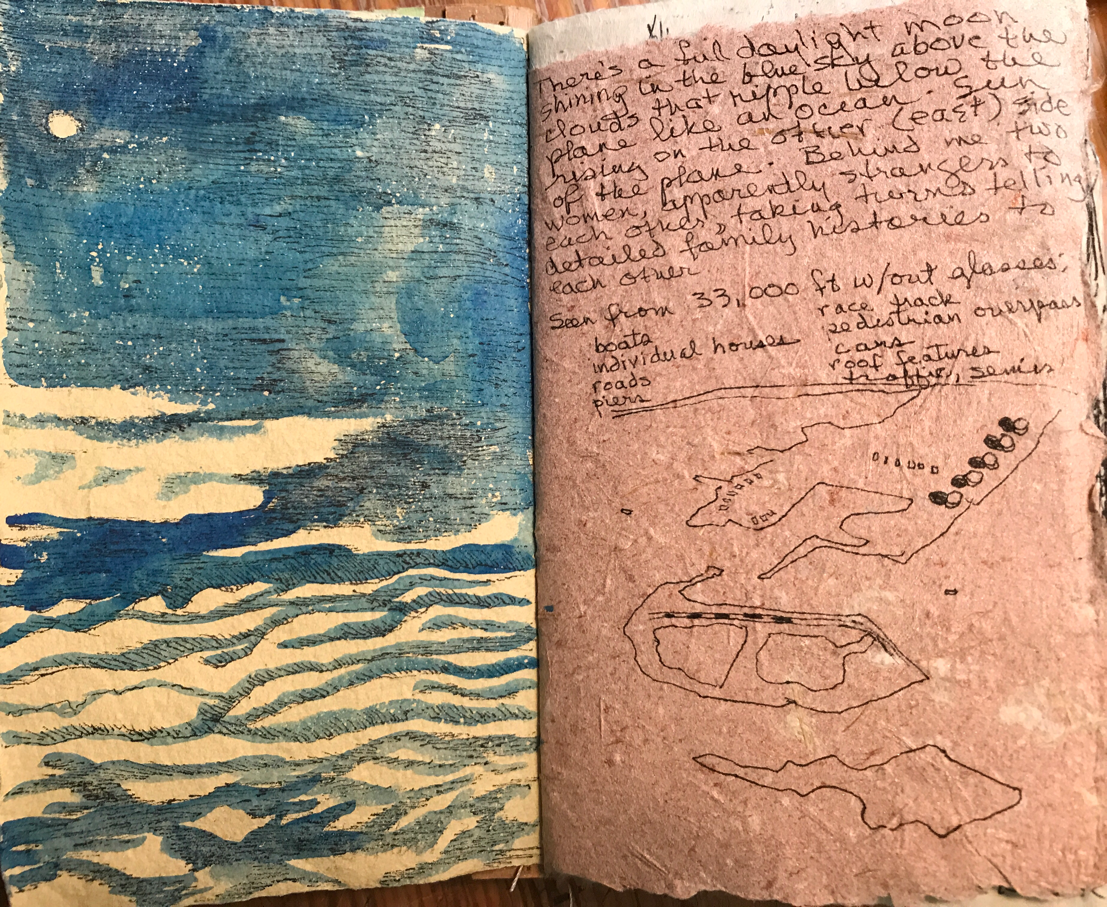 XI.
There's a full daylight moon
shining in the blue sky above the
clouds that ripple below the
plane like an ocean. Sun
rising on the other (east) side
of the plane. Behind me two
women, apparently strangers to
each other, taking turns telling
detailed family histories to
each other
Seen from 33,000 ft w/out glasses:
boats
individual houses
roads
piers
race track
pedestrian overpass
cars
roof features
traffic, semis